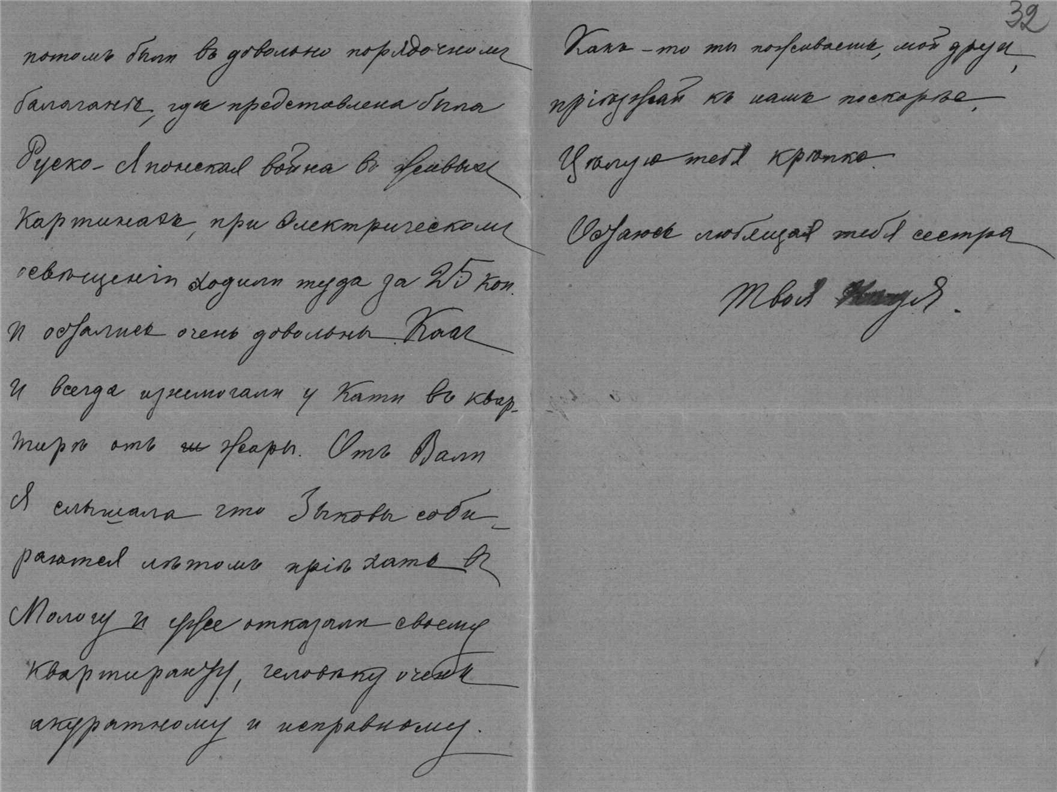 потомъ были въ довольно порядочномъ
балаганѣ, где представлена была
Руско-Японская война въ живыхъ
картинахъ, при электрическомъ
освѣщеніи ходили туда за 25 коп.
и остались очень довольны. Какъ
и всегда изнемогали у Кати въ квар-
тирѣ отъ жары. Отъ Вали
я слышала что Зыковы соби-
раются лѣтомъ пріѣхать въ
Мологу и уже отказали своему
квартиранту, человѣку очень
акуратному и исправному.
32
Какъ-то ты поживаешь, мой другъ,
пріѣзжай къ намъ поскорѣе.
Цѣлую тебя крѣпко.
Остаюсь любящая тебя сестра
Твоя